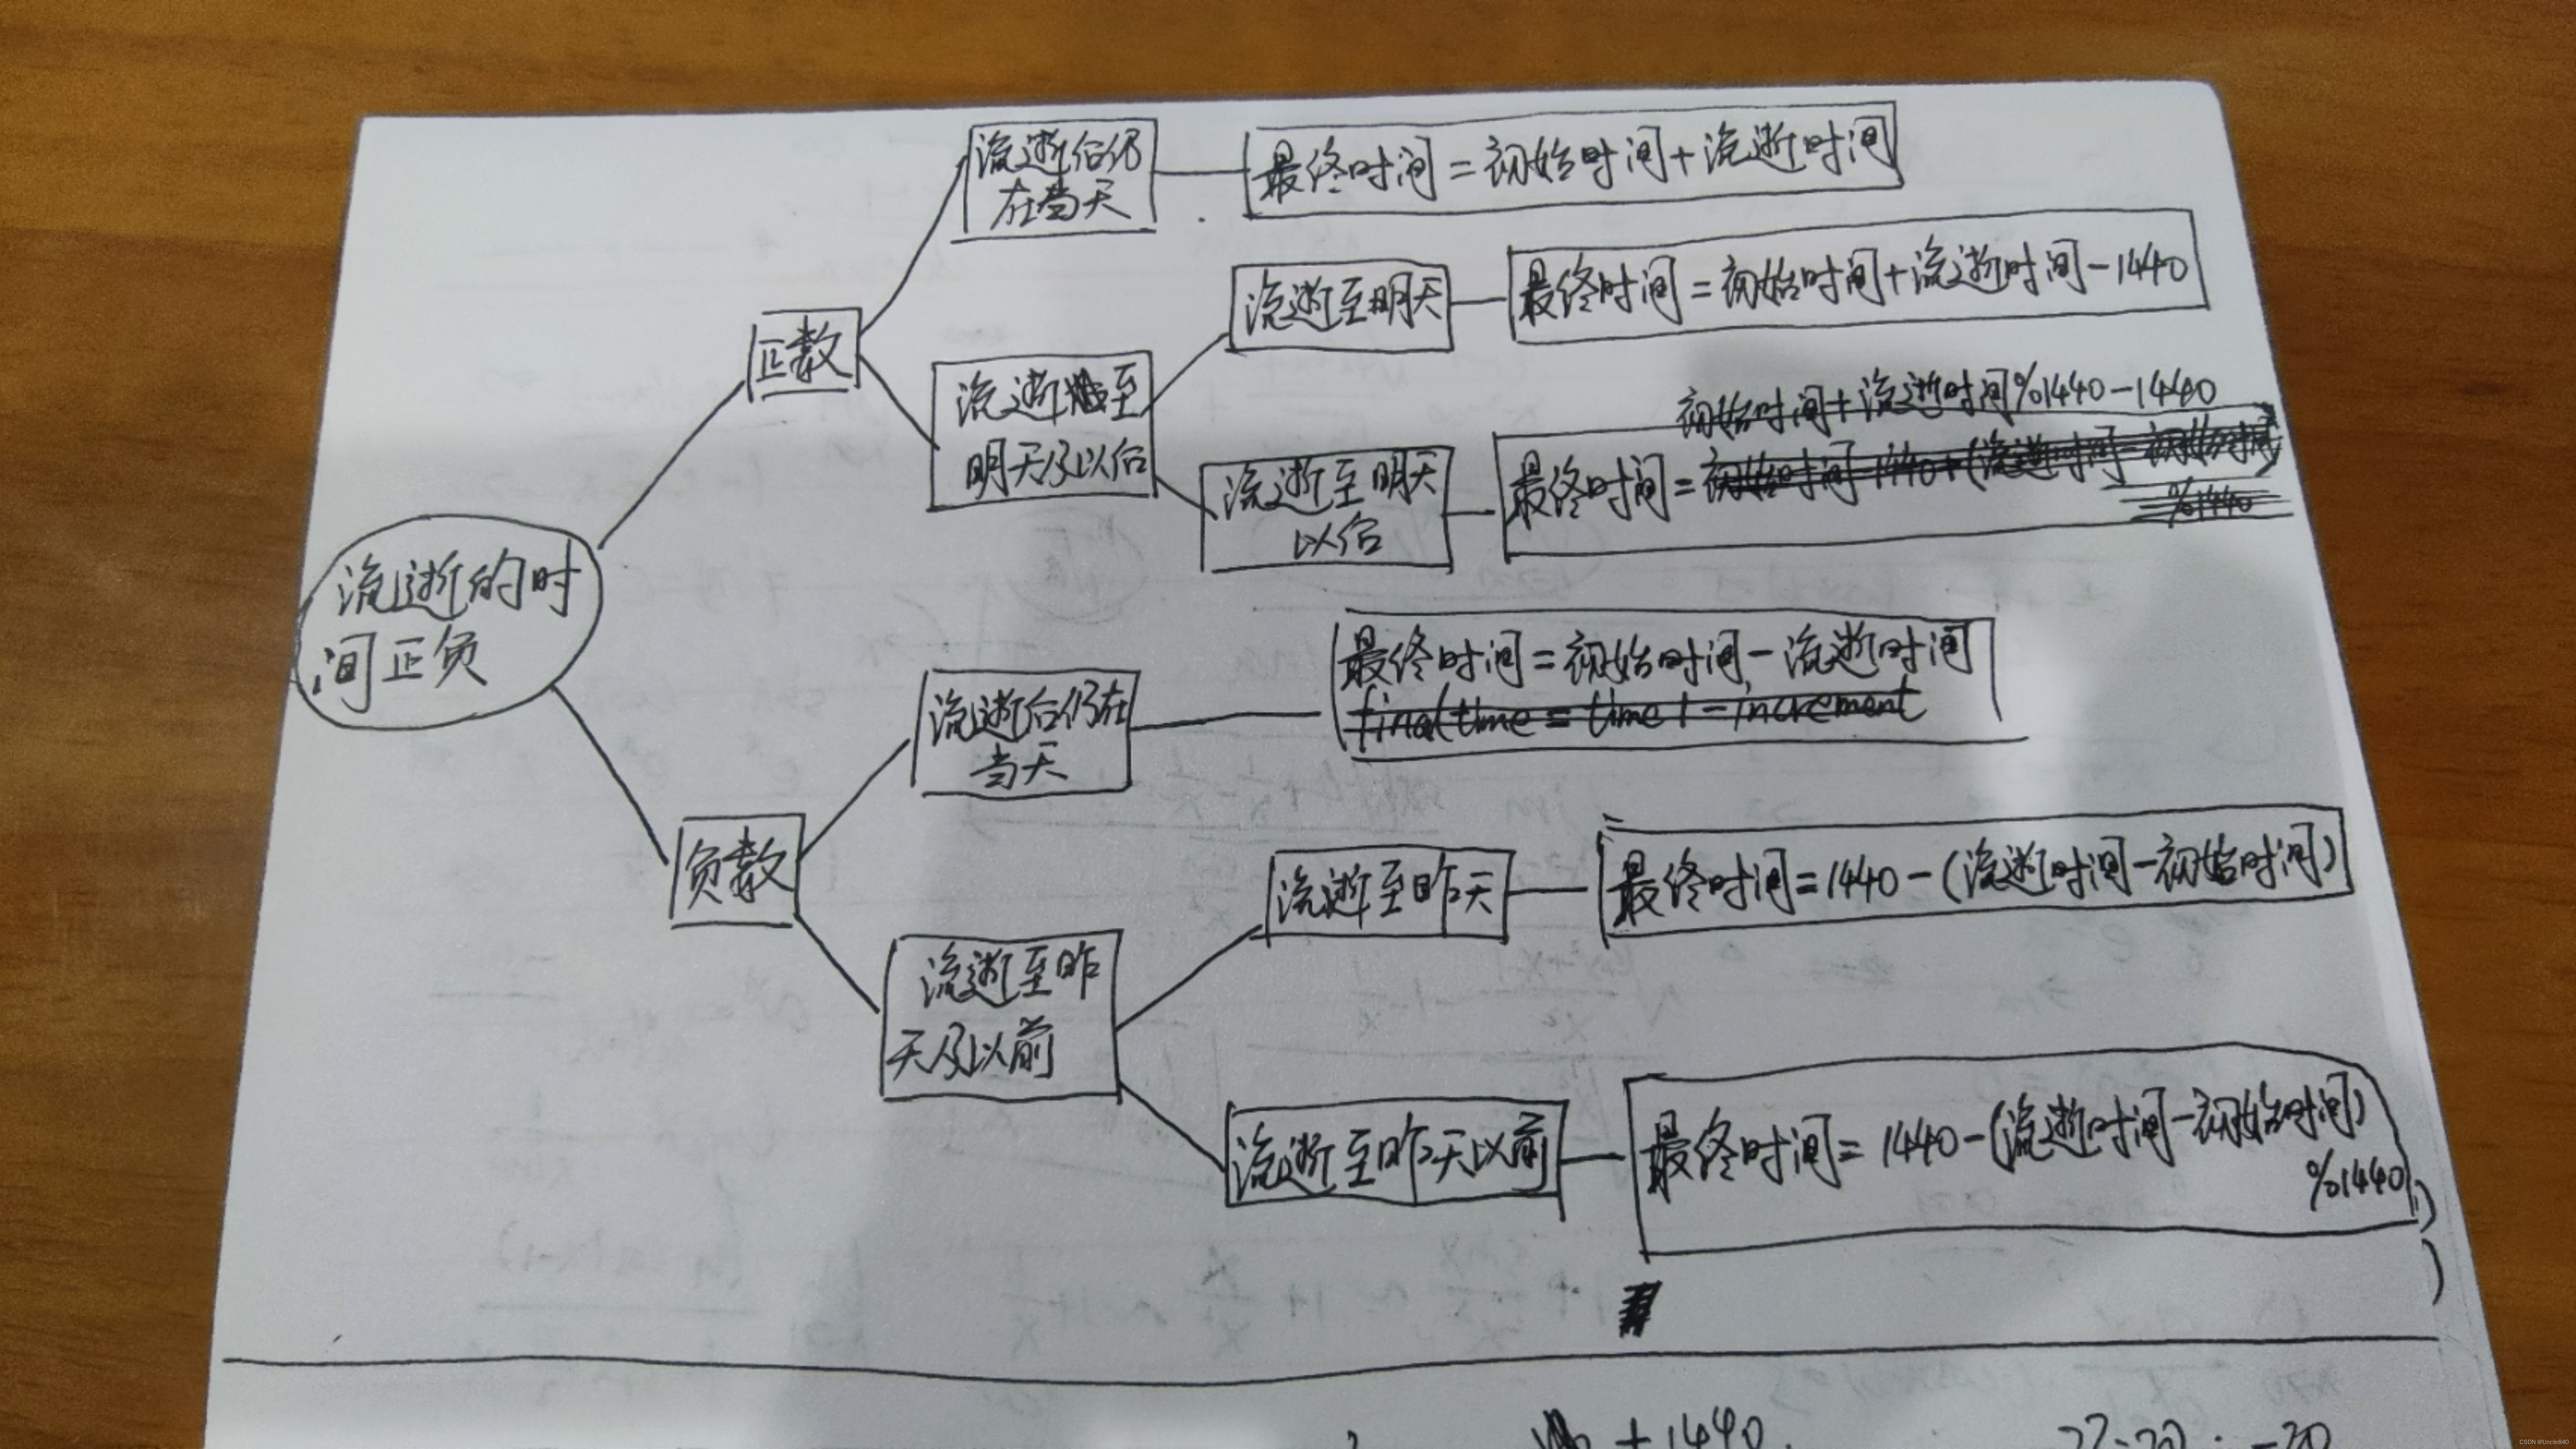 流逝的时
间正负
正数
流逝后仍
在当天
最终时间=初始时间+流逝时间
流逝至
明天及以后
流逝至明天
最终时间=初始时间+流逝时间-1440
流逝至明天
以后
初始时间+流逝时间%1440-1440
最终时间=初始时间-1440+(流逝时间-初始时间)
%1440
负数
流逝后仍在
当天
最终时间=初始时间-流逝时间
final time = time1-increment
流逝至昨
天及以前
流逝至昨天
最终时间=1440-(流逝时间-初始时间)
流逝至昨天以前
最终时间=1440-(流逝时间-初始时间)
%1440)
)
+1440
CSDN @Uncle840